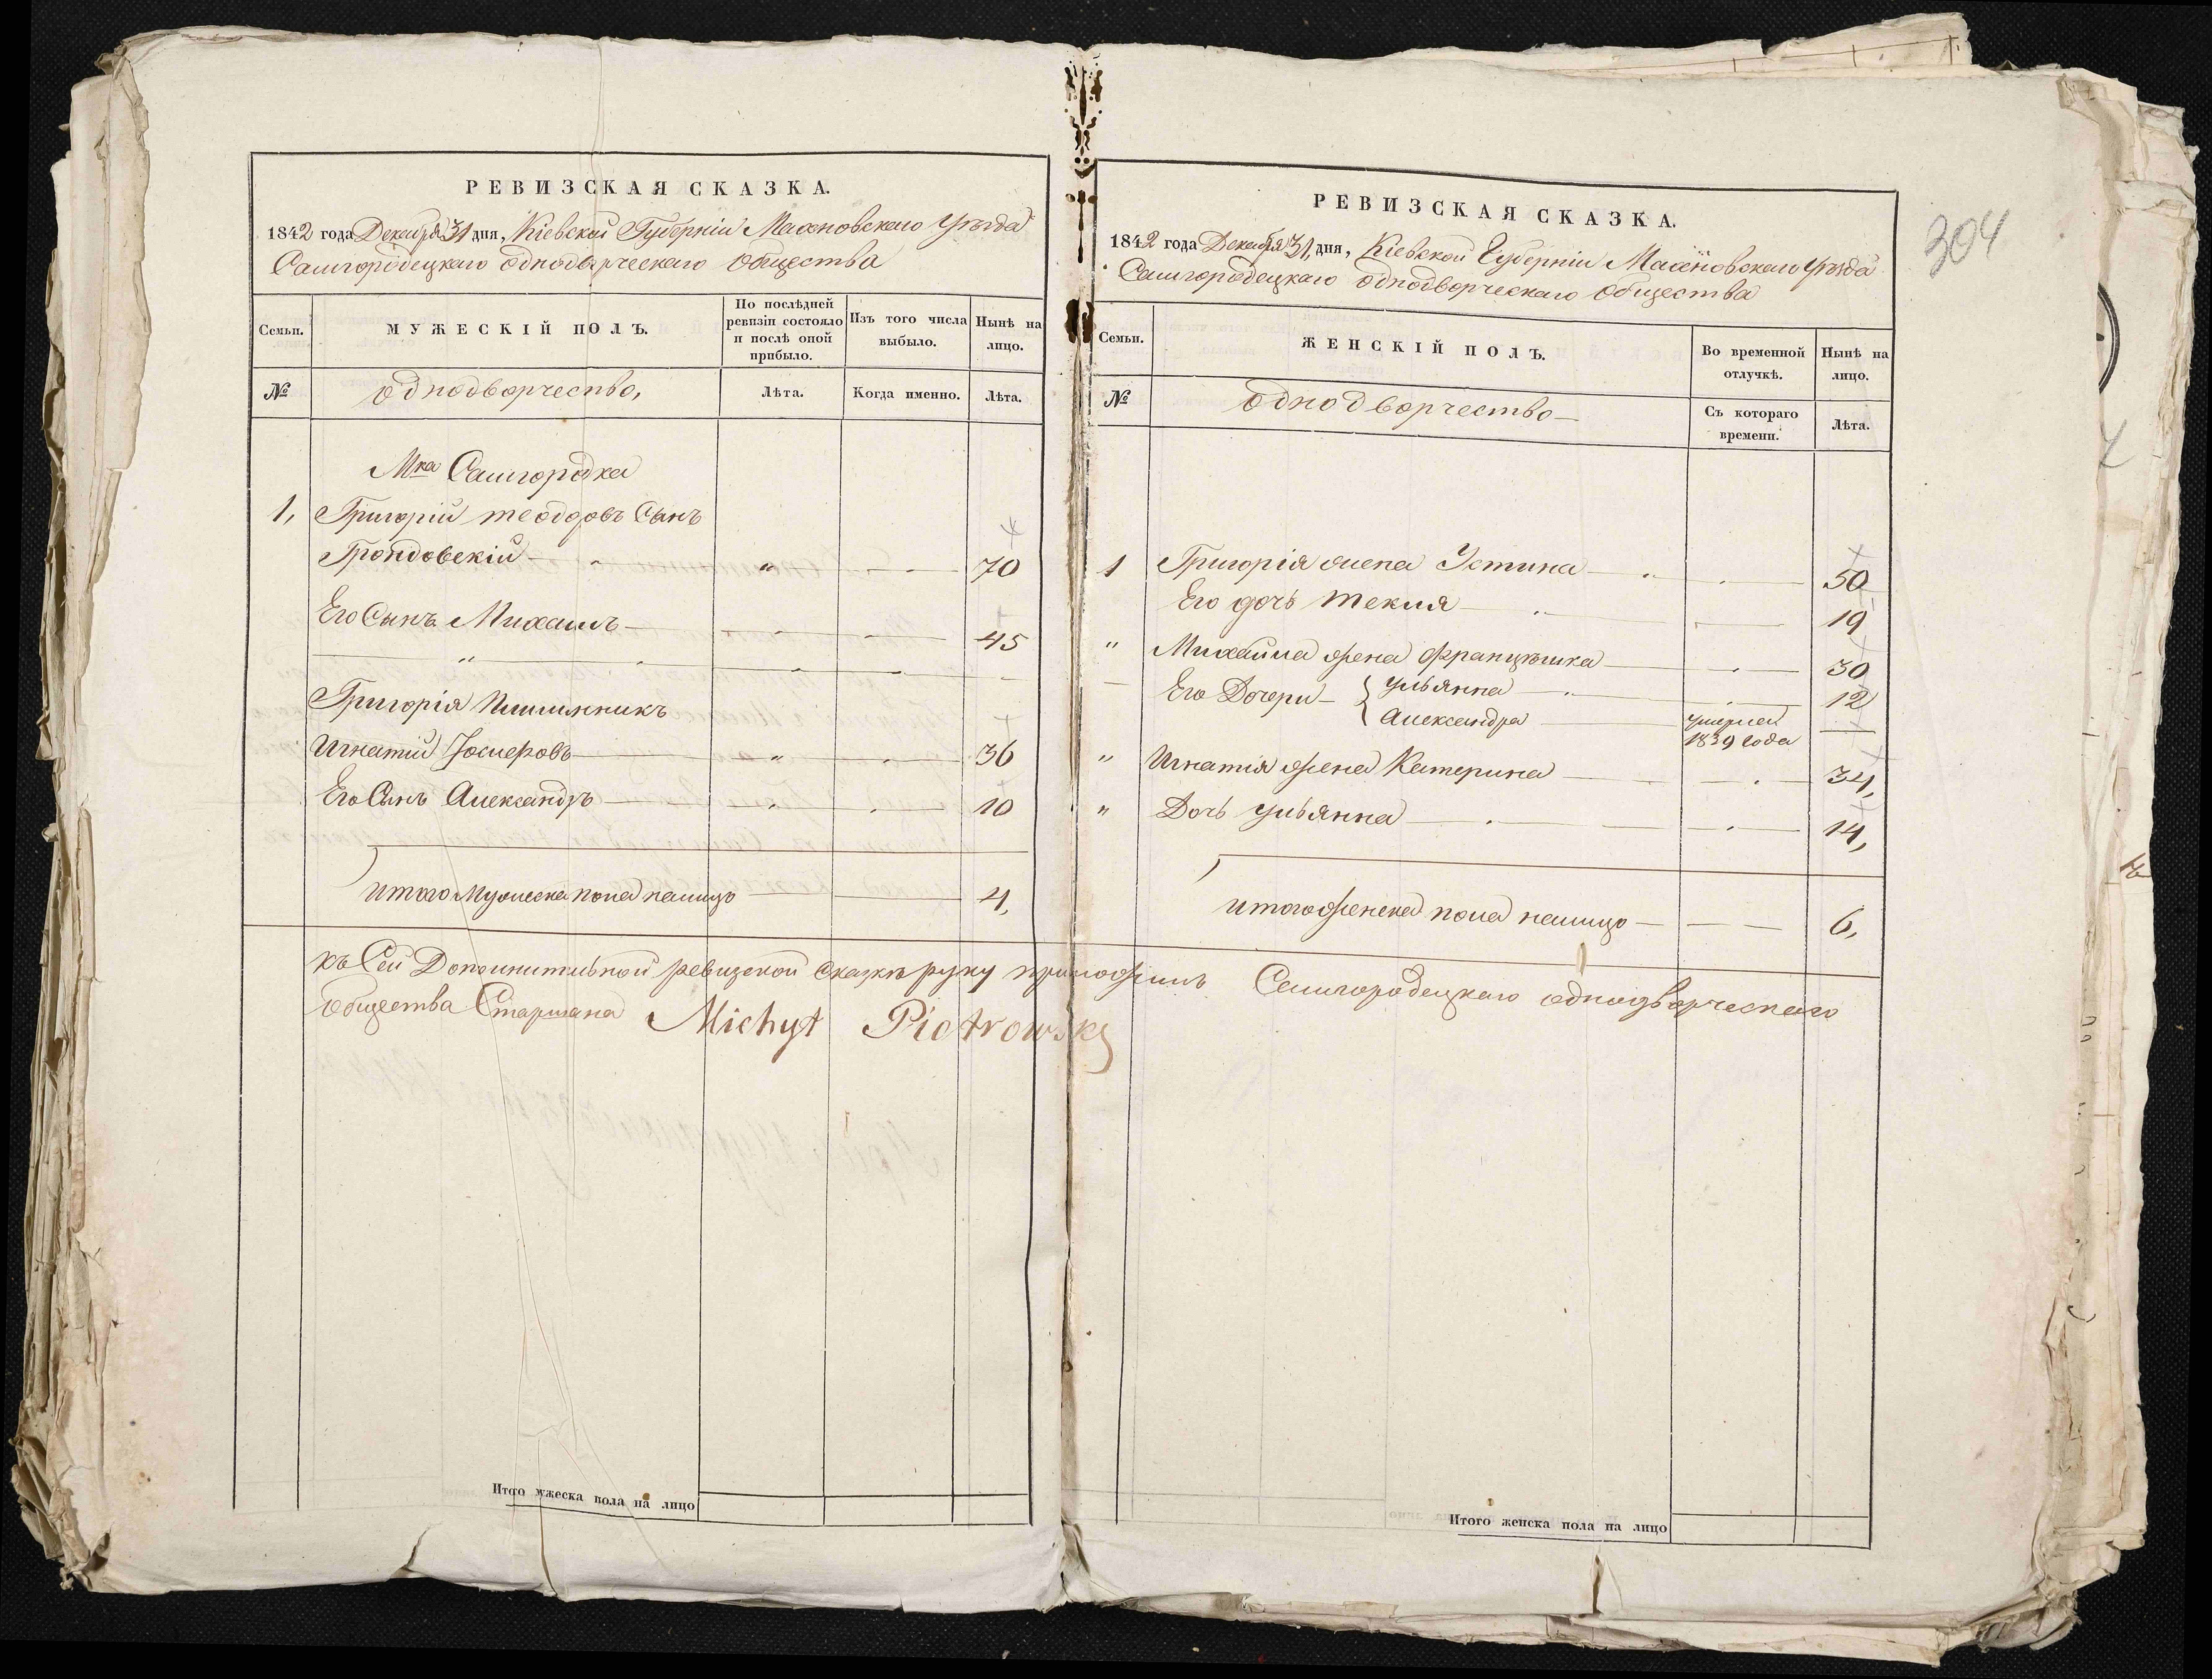 РЕВИЗСКАЯ СКАЗКА.
1842 года Декабря 31 дня, Кіевской Губерніи Махновскаго Уѣзда
Самгородецкаго однодворческаго Общества
Семьи.
МУЖЕСКІЙ ПОЛЪ.
По послѣдней ревизіи состояло и послѣ оной прибыло.
Изъ того числа выбыло.
Нынѣ на лицо.
№
однодворчество,
Лѣта.
Когда именно.
Лѣта.
Мка Самгородка
1, Григорій теодоровъ Сынъ
Грондовскій 70
Его Сынъ Михаилъ 45
Григорія Племянникъ
Игнатій 36
Его Сынъ Александръ 10
Итого Мужеска пола налицо 4,
РЕВИЗСКАЯ СКАЗКА.
304
1842 года Декабря 31, дня, Кіевской Губерніи Махновскаго Уѣзда
Самгородецкаго однодворческаго Общества
Семьи.
ЖЕНСКІЙ ПОЛЪ.
Во временной отлучкѣ.
Нынѣ на лицо.
№
однодворчество
Съ котораго времени.
Лѣта.
1 Григорія жена Устина 50
Его дочь Текля 19
" Михайла жена Францѣшка 30
Его Дочери { Ульянна 12
Александра умерла 1839 года
" Игнатія жена Катерина 34,
" Дочь Ульянна 14,
Итого женска пола налицо 6,
къ Сей Дополнительной ревизской Сказкѣ руку приложилъ Самгородецкаго однодворческаго
Общества Старшина Michył Piotrowsky
Итого мужеска пола на лицо
Итого женска пола на лицо